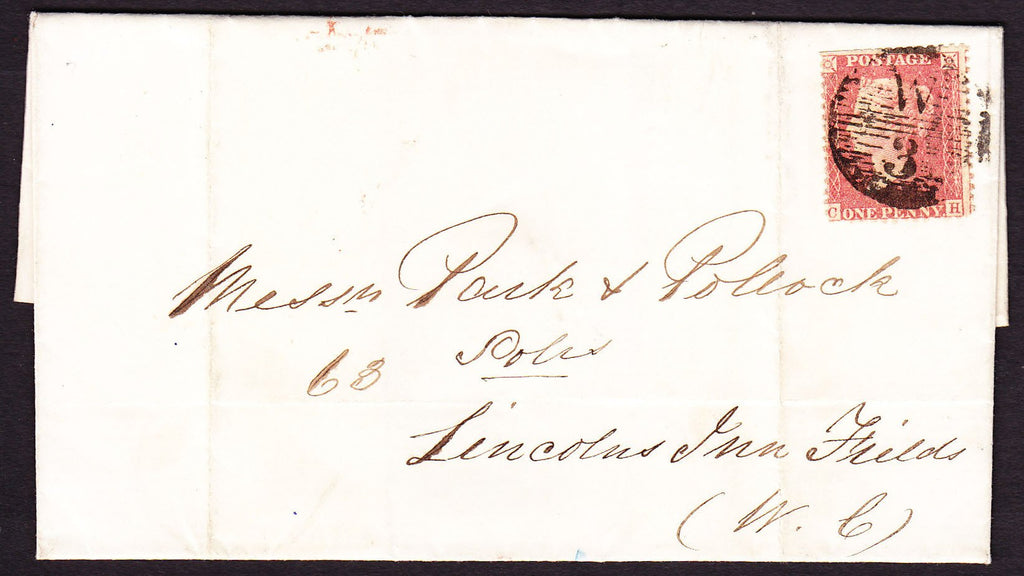 POSTAGE
W
3
C ONE PENNY H
Messrs Park & Pollock
Solrs
63
Lincolns Inn Fields
(W. C)